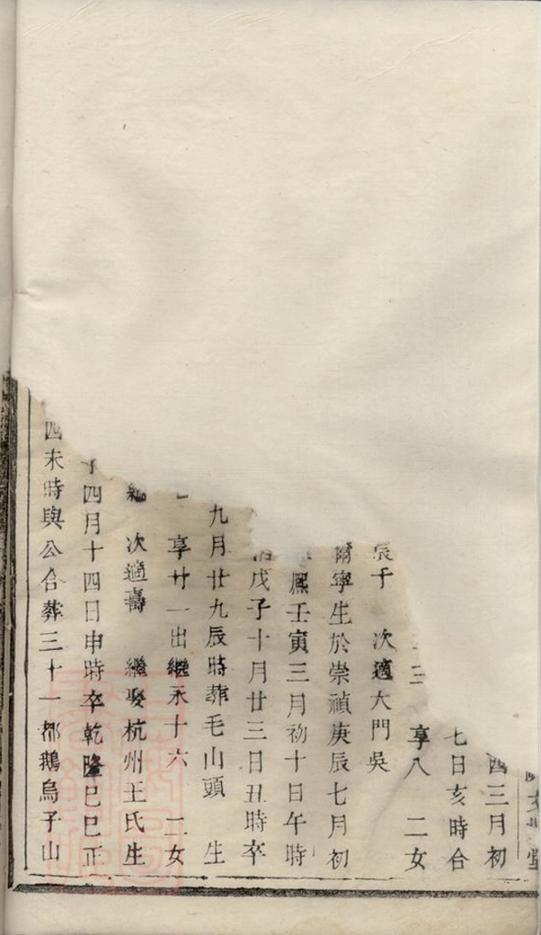 四三月初
七日亥時合
享八 二女
辰子 次適大門吳
爾寧生於崇禎庚辰七月初
熙壬寅三月初十日午時
戊子十月廿三日丑時卒
九月廿九辰時葬毛山頭 生
享廿一出繼禾十六 二女
次適壽 繼娶杭州王氏生
四月十四日申時卒乾隆己巳正
四未時與公合葬三十一都鵝烏子山